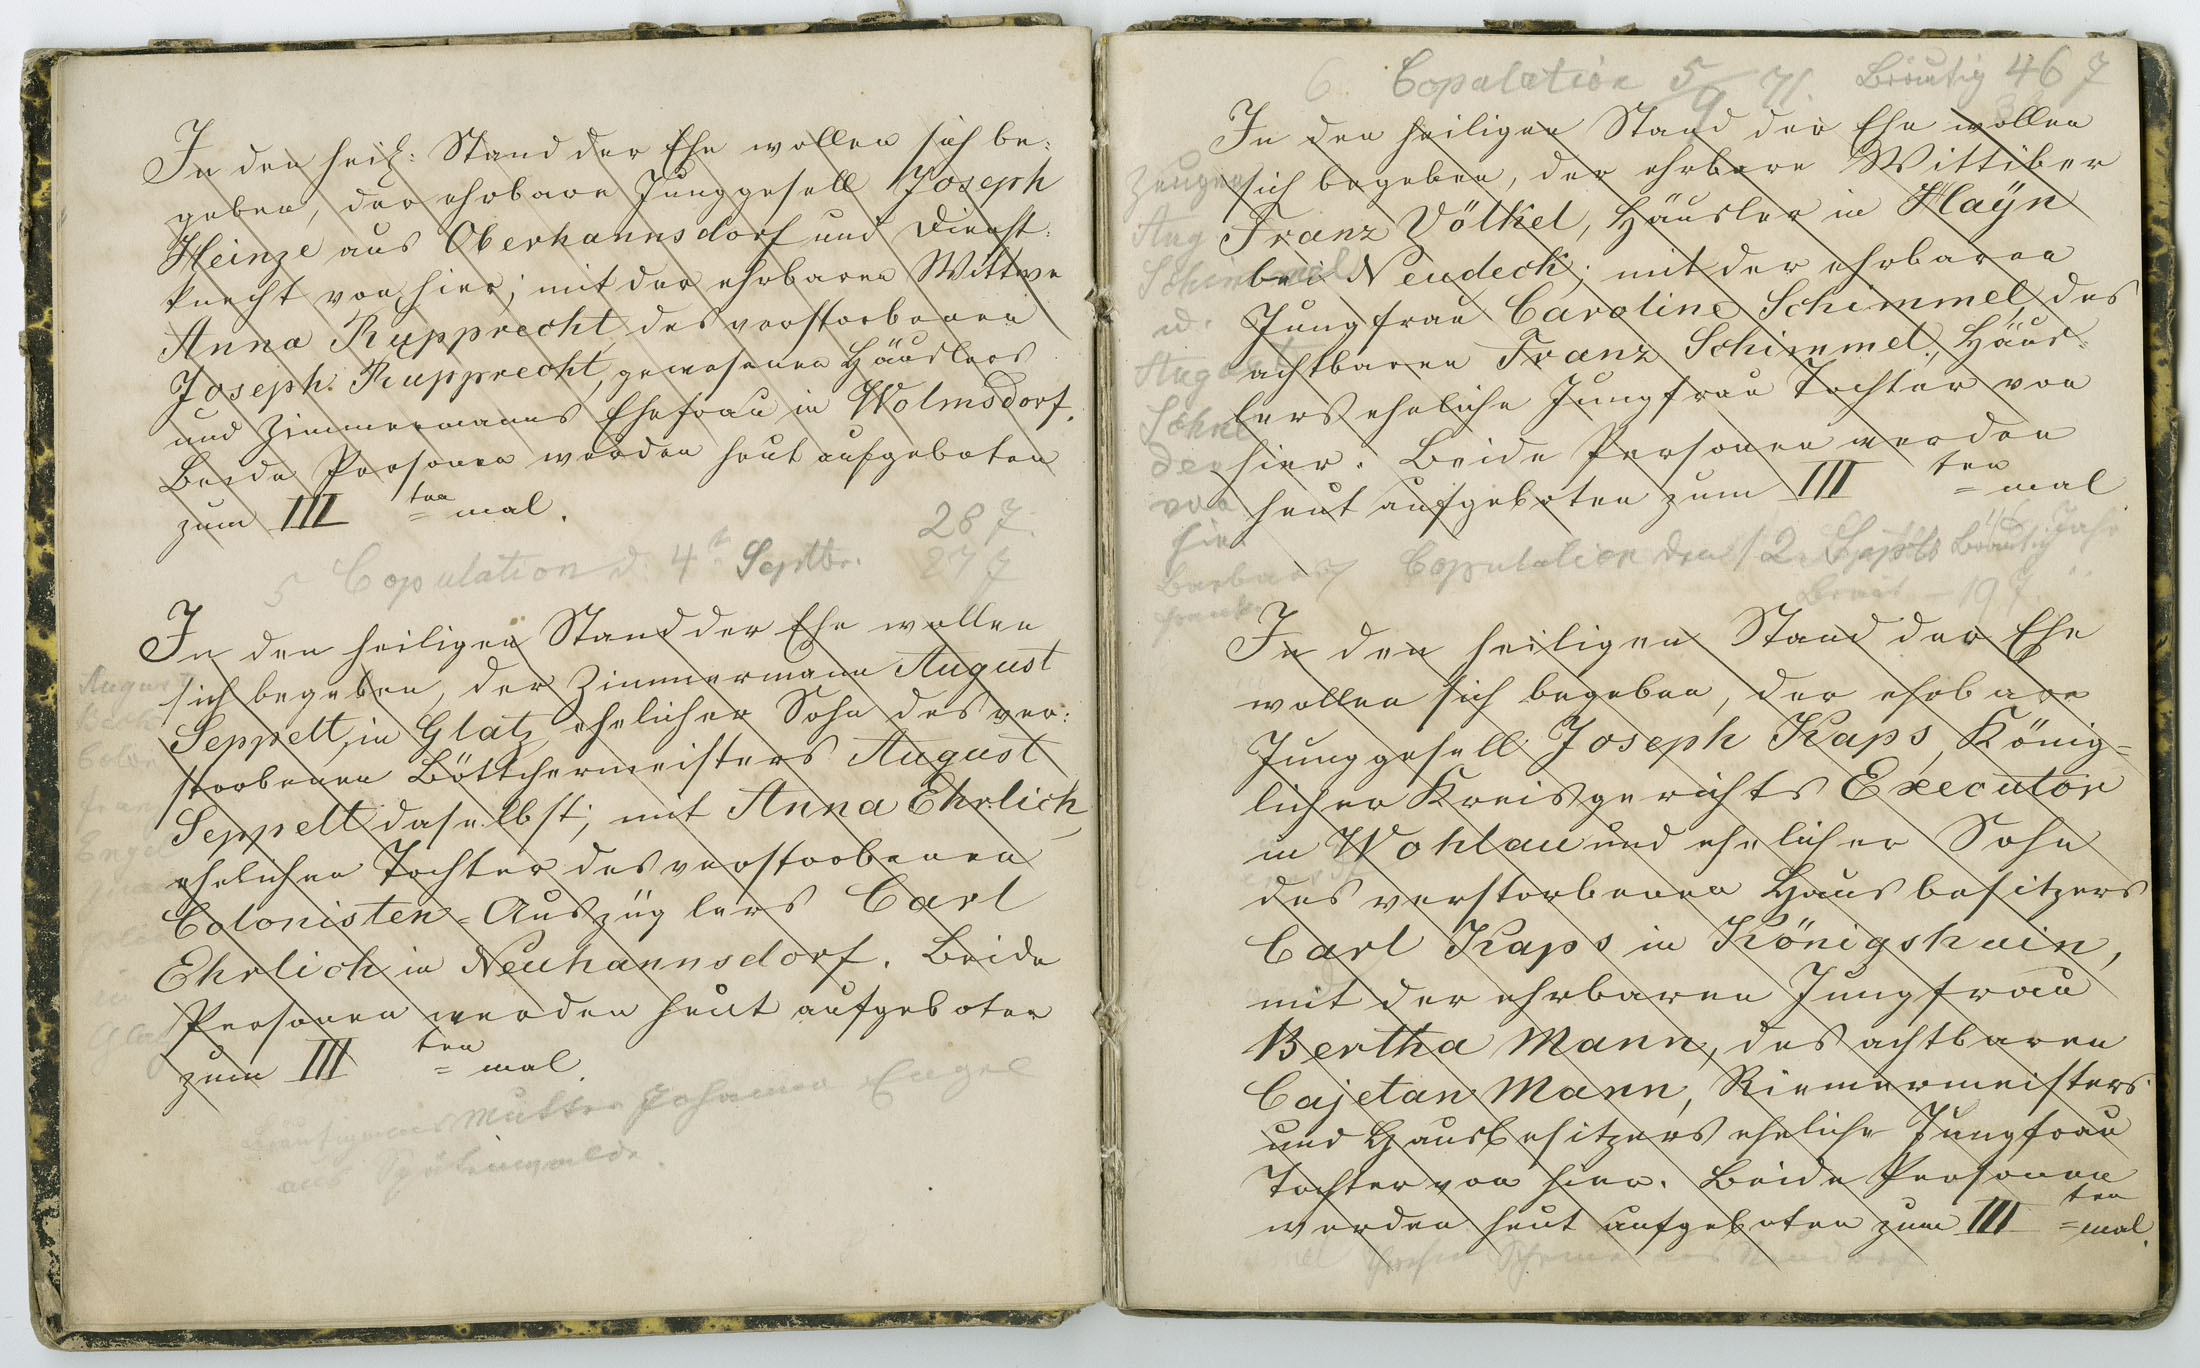 In den heil: Stand der Ehe wollen sich be-
geben, der ehrbare Junggesell Joseph
Heinze aus Oberhannsdorf und Dienst-
knecht von hier; mit der ehrbaren Wittwe
Anna Rupprecht, des verstorbenen
Joseph Rupprecht, gewesenen Häuslers
und Zimmermanns Ehefrau in Wolmsdorf.
Beide Personen werden heut aufgeboten
zum III ten = mal.
28 J.
5 Copulation d. 4t Septbr. 27 J
In den heiligen Stand der Ehe wollen
sich begeben, der Zimmermann August
Seppelt, in Glatz ehelicher Sohn des ver-
storbenen Böttchermeisters August
Seppelt daselbst; mit Anna Ehrlich,
ehelichen Tochter des verstorbenen
Colonisten-Auszüglers Carl
Ehrlich in Neuhannsdorf. Beide
Personen werden heut aufgeboten
zum III ten = mal.
August
Franz
Engel
in
Glatz
Bräutigams Mutter Johanna Engel
aus
6. Copulation 5/9 71. Bräutig 46 J
In den heiligen Stand der Ehe wollen
sich begeben, der ehrbare Wittiber
Franz Völkel, Häusler in Hayn
bei Neudeck; mit der ehrbaren
Jungfrau Caroline Schimmel, des
achtbaren Franz Schimmel, Häus-
lers eheliche Jungfrau Tochter von
hier. Beide Personen werden
heut aufgeboten zum III ten = mal
Zeugen
Aug
Schimmel
u.
August
von
hier
7 Copulation den 12. Septb Bräutig 46 Jahr
Braut – 19 J. "
In den heiligen Stand der Ehe
wollen sich begeben, der ehrbare
Junggesell Joseph Kaps, König-
licher Kreisgerichts Executor
in Wohlau und ehelicher Sohn
des verstorbenen Hausbesitzers
Carl Kaps in Königshain,
mit der ehrbaren Jungfrau
Bertha Mann, des achtbaren
Cajetan Mann, Riemermeisters
und Hausbesitzers eheliche Jungfrau
Tochter von hier. Beide Personen
werden heut aufgeboten zum III ten = mal.